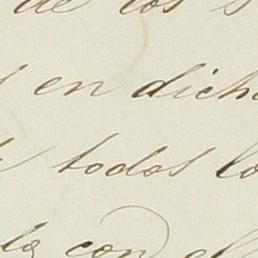 de los
en dich
todos lo
la con el